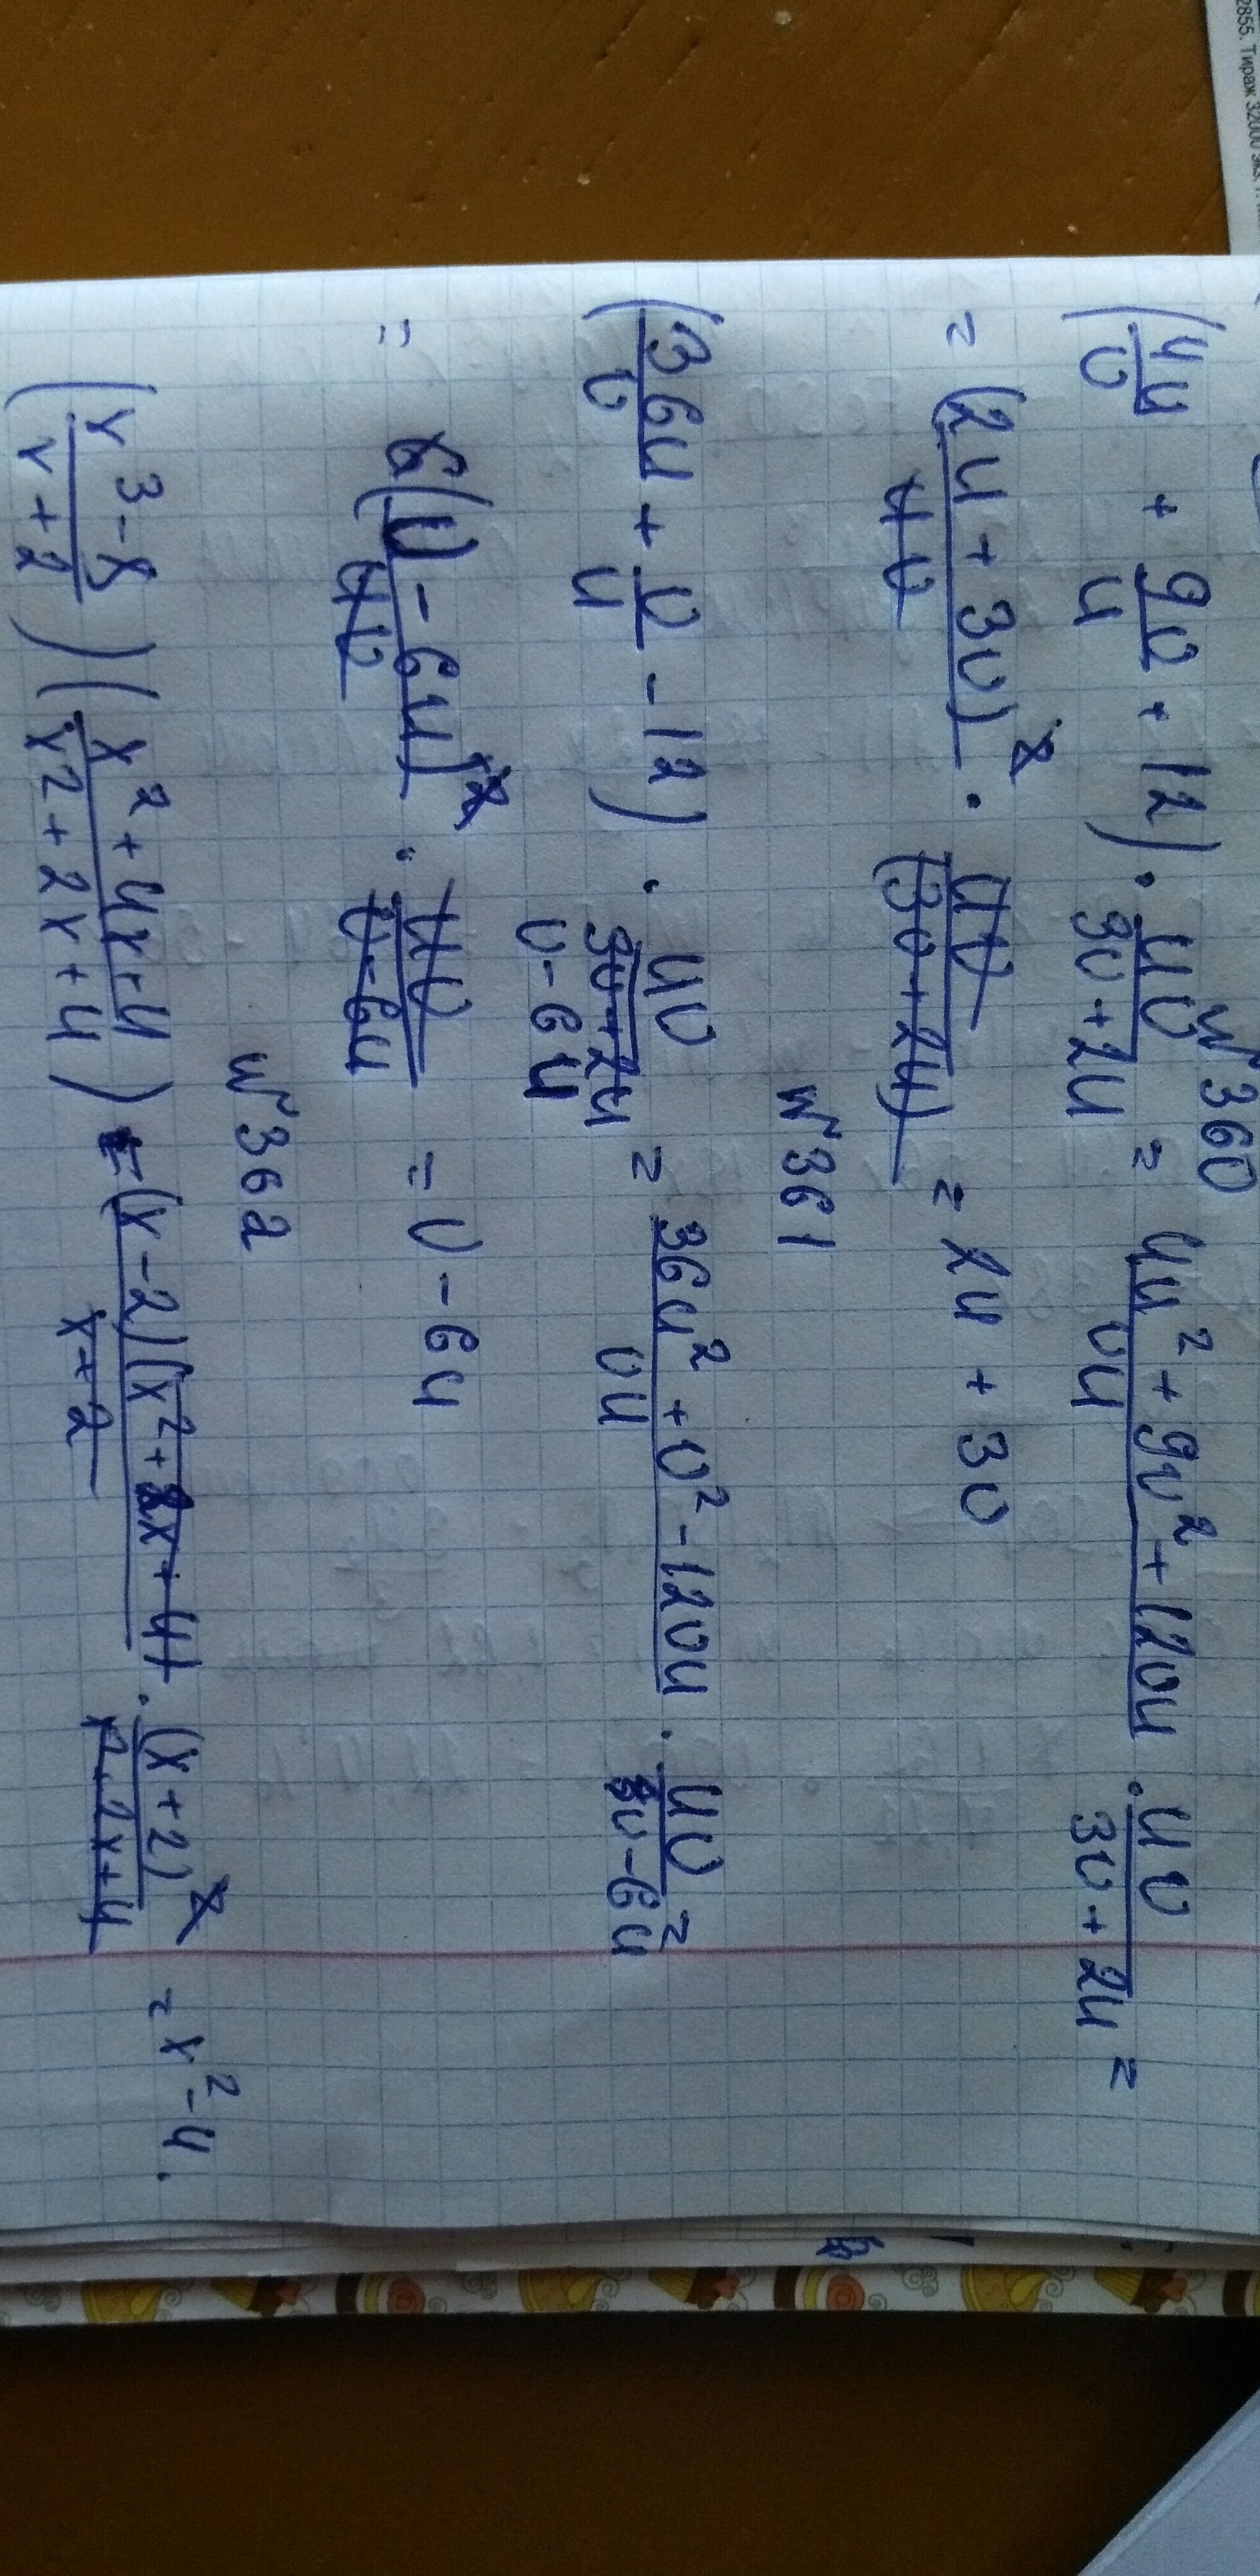 2855. Тираж 32000 экз.
N 360
(4u/v + 9v/u + 12) · uv/3v+2u = 4u² + 9v² + 12vu/vu · uv/3v+2u =
= (2u + 3v)²/uv · uv/(3v+2u) = 2u + 3v
N 361
(36u/v + v/u - 12) · uv/v-6u = 36u² + v² - 12vu/vu · uv/v-6u =
= (v - 6u)²/uv · uv/v-6u = v - 6u
N 362
(x³-8/x+2)(x²+4x+4/x²+2x+4) = (x-2)(x²+2x+4)/x+2 · (x+2)²/x²+2x+4 = x²-4.